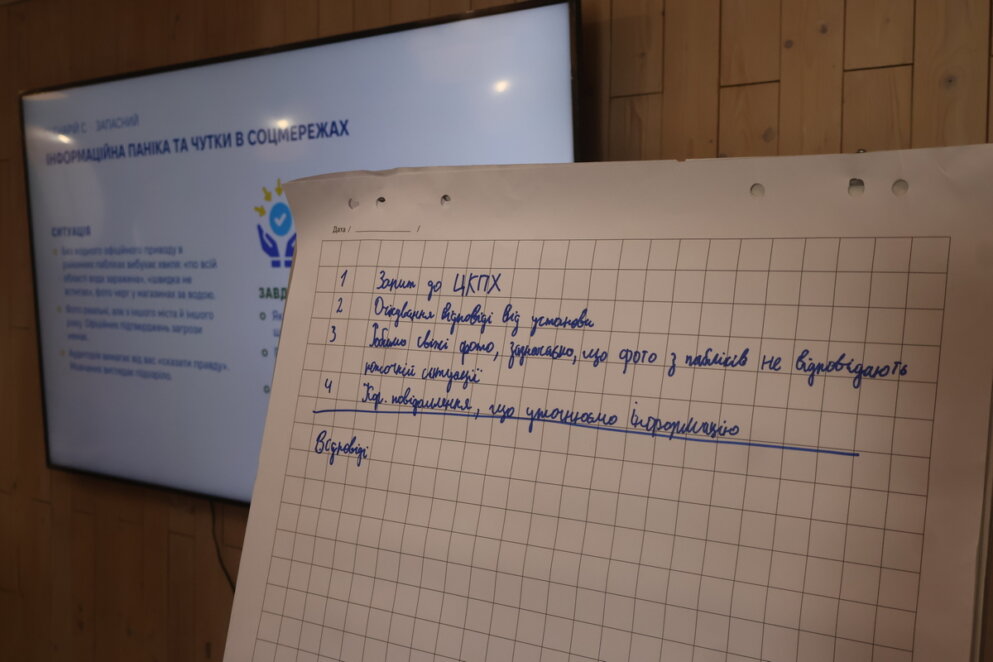 СЦЕНАРІЙ С - ЗАПАСНИЙ
ІНФОРМАЦІЙНА ПАНІКА ТА ЧУТКИ В СОЦМЕРЕЖАХ
СИТУАЦІЯ
Без жодного офіційного приводу в
районних пабліках вибухає хвиля: «по всій
області вода заражена», «швидка не
встигає», фото черг у магазинах за водою.
Фото реальні, але з іншого міста й іншого
року. Офіційних підтверджень загрози
немає.
Аудиторія вимагає від вас «сказати правду».
Мовчання виглядає підозріло.
ЗАВД
Як
Дата /
/
1 Запит до ЦКПХ
2 Очікування відповіді від установи
3 Робимо свіжі фото, зазначаємо, що фото з пабліків не відповідають
поточній ситуації
4 Кор. повідомлення, що уточнюємо інформацію
Відповіді